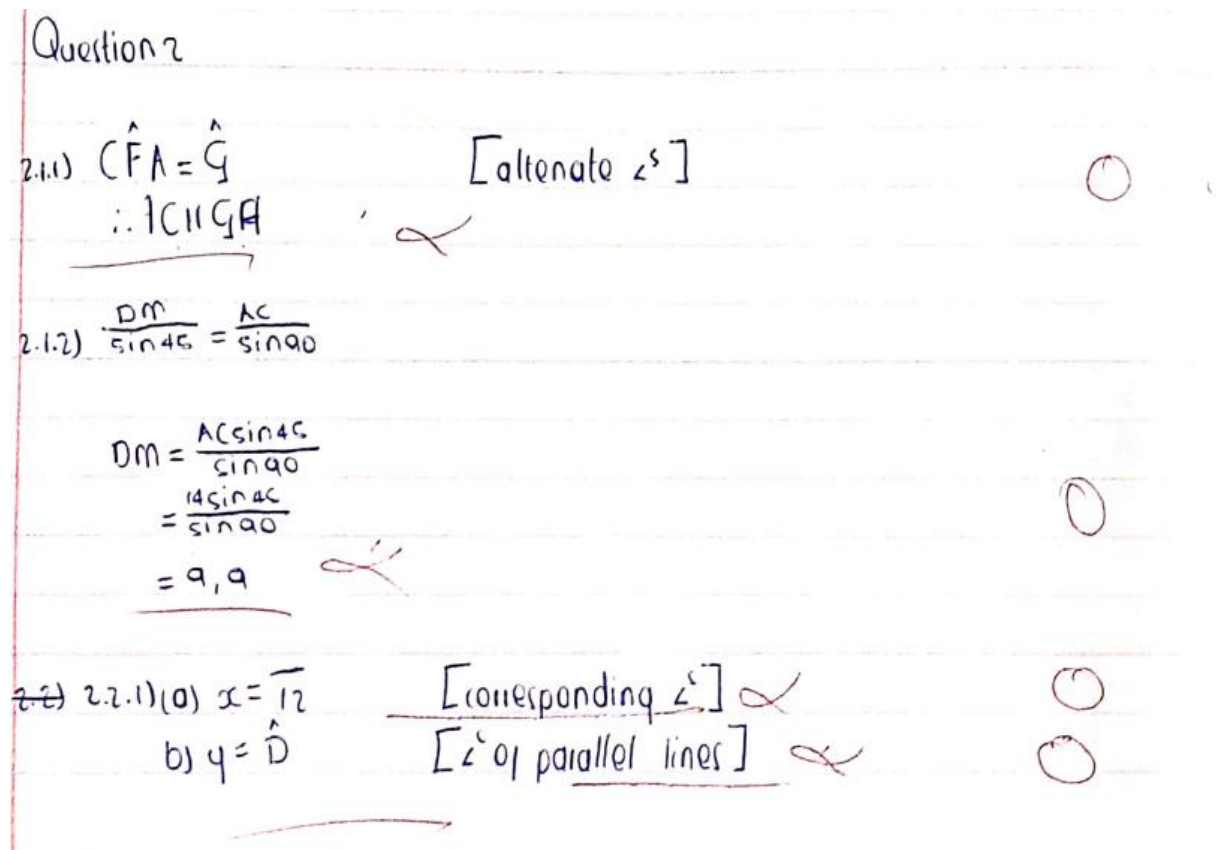 Question 2
2.1.1) CF̂A = Ĝ [altenate ∠s]
∴ FC || GH
2.1.2) DM/sin45 = AC/sin90
DM = ACsin45/sin90
= 14sin45/sin90
= 9,9
2.2) 2.2.1)(a) x = 12 [corresponding ∠s]
b) y = D̂ [∠s of parallel lines]